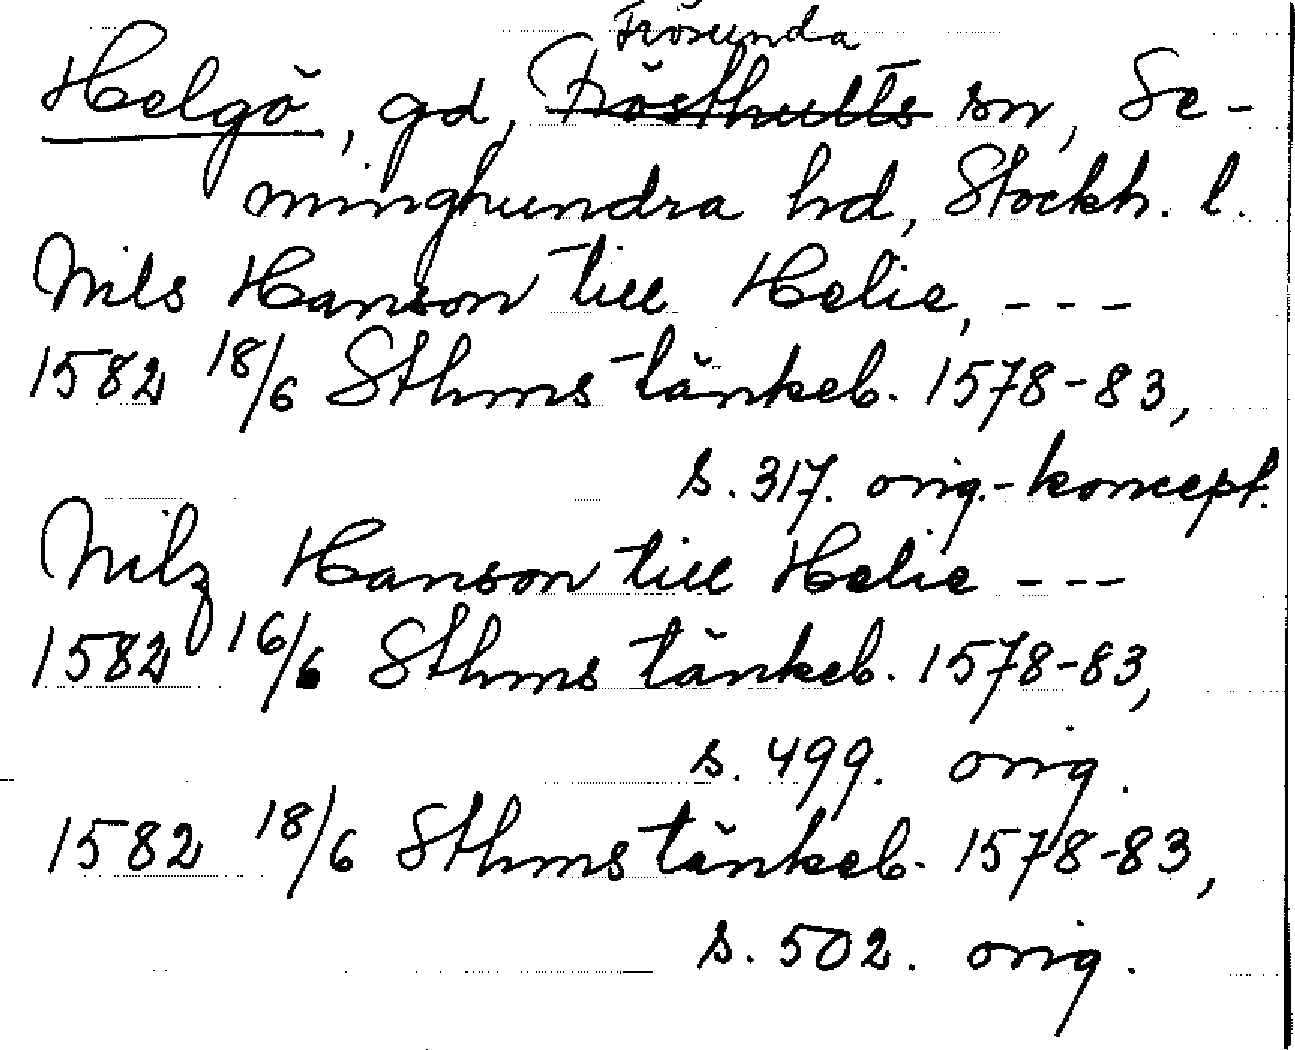 Frösunda
Helgö, gd, Frösthults sn, Se-
minghundra hd, Stockh. l.
Nils Hanson till Helie, ---
1582 18/6 Sthms tänkeb. 1578-83,
s. 317. orig.-koncept.
Nilz Hanson till Helie ---
1582 16/6 Sthms tänkeb. 1578-83,
s. 499. orig.
1582 18/6 Sthms tänkeb. 1578-83,
s. 502. orig.